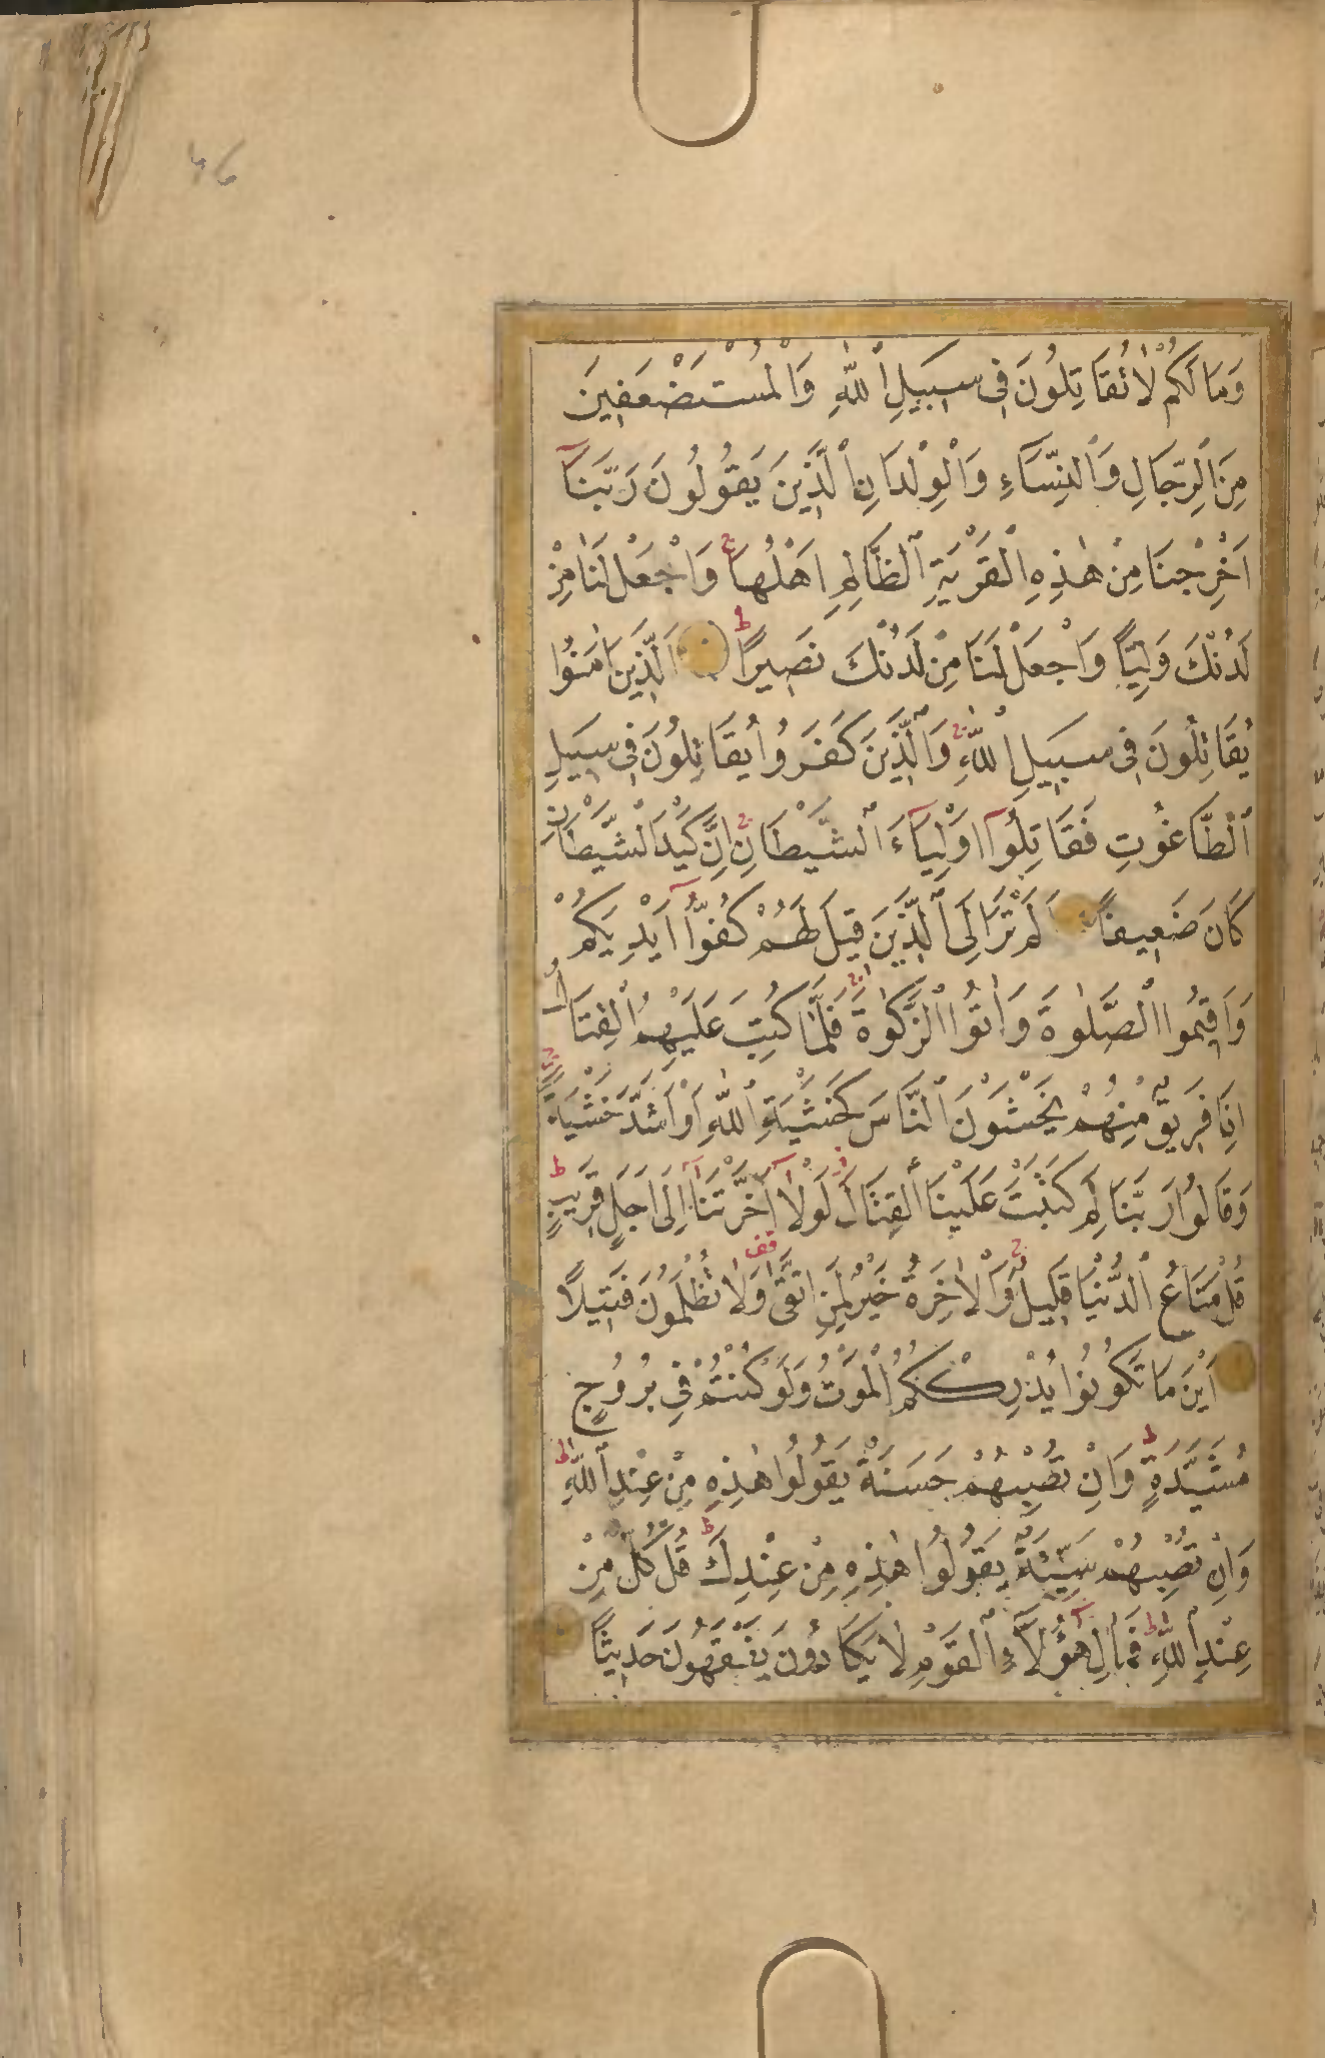 46
وَمَا لَكُمْ لَا تُقَاتِلُونَ فِى سَبِيلِ ٱللّٰهِ وَالْمُسْتَضْعَفِينَ
مِنَ ٱلرِّجَالِ وَٱلنِّسَاءِ وَالْوِلْدَانِ ٱلَّذِينَ يَقُولُونَ رَبَّنَآ
اَخْرِجْنَا مِنْ هٰذِهِ ٱلْقَرْيَةِ ٱلظَّالِمِ اَهْلُهَا ج وَاجْعَلْ لَنَا مِنْ
لَدُنْكَ وَلِيًّا وَاجْعَلْ لَنَا مِنْ لَدُنْكَ نَصِيرًا ط اَلَّذِينَ اٰمَنُوا
يُقَاتِلُونَ فِى سَبِيلِ ٱللّٰهِ ج وَٱلَّذِينَ كَفَرُوا يُقَاتِلُونَ فِى سَبِيلِ
ٱلطَّاغُوتِ فَقَاتِلُوآ اَوْلِيَآءَ ٱلشَّيْطَانِ ج اِنَّ كَيْدَ ٱلشَّيْطَانِ
كَانَ ضَعِيفًا اَلَمْ تَرَ اِلَى ٱلَّذِينَ قِيلَ لَهُمْ كُفُّوآ اَيْدِيَكُمْ
وَاَقِيمُوا ٱلصَّلٰوةَ وَاٰتُوا ٱلزَّكٰوةَ ج فَلَمَّا كُتِبَ عَلَيْهِمُ ٱلْقِتَالُ
اِذَا فَرِيقٌ مِنْهُمْ يَخْشَوْنَ ٱلنَّاسَ كَخَشْيَةِ ٱللّٰهِ اَوْ اَشَدَّ خَشْيَةً ج
وَقَالُوا رَبَّنَا لِمَ كَتَبْتَ عَلَيْنَا ٱلْقِتَالَ لَوْلَآ اَخَّرْتَنَآ اِلٰى اَجَلٍ قَرِيبٍ ط
قُلْ مَتَاعُ ٱلدُّنْيَا قَلِيلٌ ج وَالْاٰخِرَةُ خَيْرٌ لِمَنِ اتَّقٰى قف وَلَا تُظْلَمُونَ فَتِيلًا
اَيْنَ مَا تَكُونُوا يُدْرِكْكُمُ ٱلْمَوْتُ وَلَوْ كُنْتُمْ فِى بُرُوجٍ
مُشَيَّدَةٍ ط وَاِنْ تُصِبْهُمْ حَسَنَةٌ يَقُولُوا هٰذِهِ مِنْ عِنْدِ ٱللّٰهِ ط
وَاِنْ تُصِبْهُمْ سَيِّئَةٌ يَقُولُوا هٰذِهِ مِنْ عِنْدِكَ ط قُلْ كُلٌّ مِنْ
عِنْدِ ٱللّٰهِ ط فَمَالِ هٰؤُلَآءِ ٱلْقَوْمِ لَا يَكَادُونَ يَفْقَهُونَ حَدِيثًا